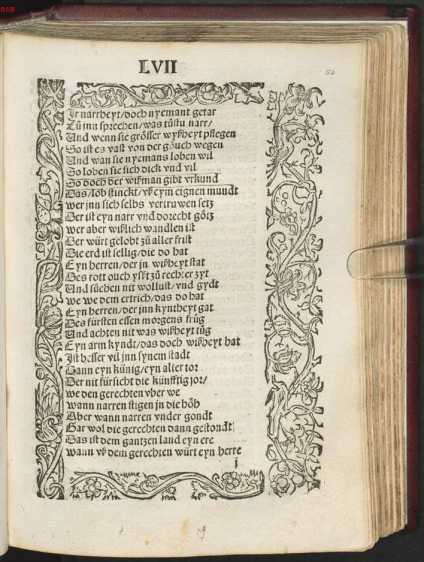 LVII
52
Ir narrheyt/doch nyemant getar
Zů inn sprechen/was tůstu narr/
Und wenn sie grösser wyßheyt pflegen
So ist es vast von der göuch wegen
Und wan sie nyemans loben wil
So loben sie sich dick vnd vil
So doch der wißman gibt vrkund
Das/lob stinckt/vß eym eignen mundt
wer jnn sich selbs vertruwen setz
Der ist eyn narr vnd dorecht götz
wer aber wißlich wandlen ist
Der würt gelobt zů aller frist
Die erd ist sellig/die do hat
Eyn herren/der jn wißheyt stat
Des rott ouch yßt zů rechter zyt
Und sůchen nit wollust/vnd gydt
we we dem ertrich/das do hat
Eyn herren/der jnn kyntheyt gat
Des fürsten essen morgens frůg
Und achten nit was wißheyt tůg
Eyn arm kyndt/das doch wißheyt hat
Ist besser vil jnn synem stadt
Dann eyn künig/eyn alter tor
Der nit fürsicht die künfftig jor/
we den gerechten vber we
wann narren stigen jn die höh
Aber wann narren vnder gondt
Gar wol die gerechten dann gestondt
Das ist dem gantzen land eyn ere
wann vß dem gerechten würt eyn herre
i